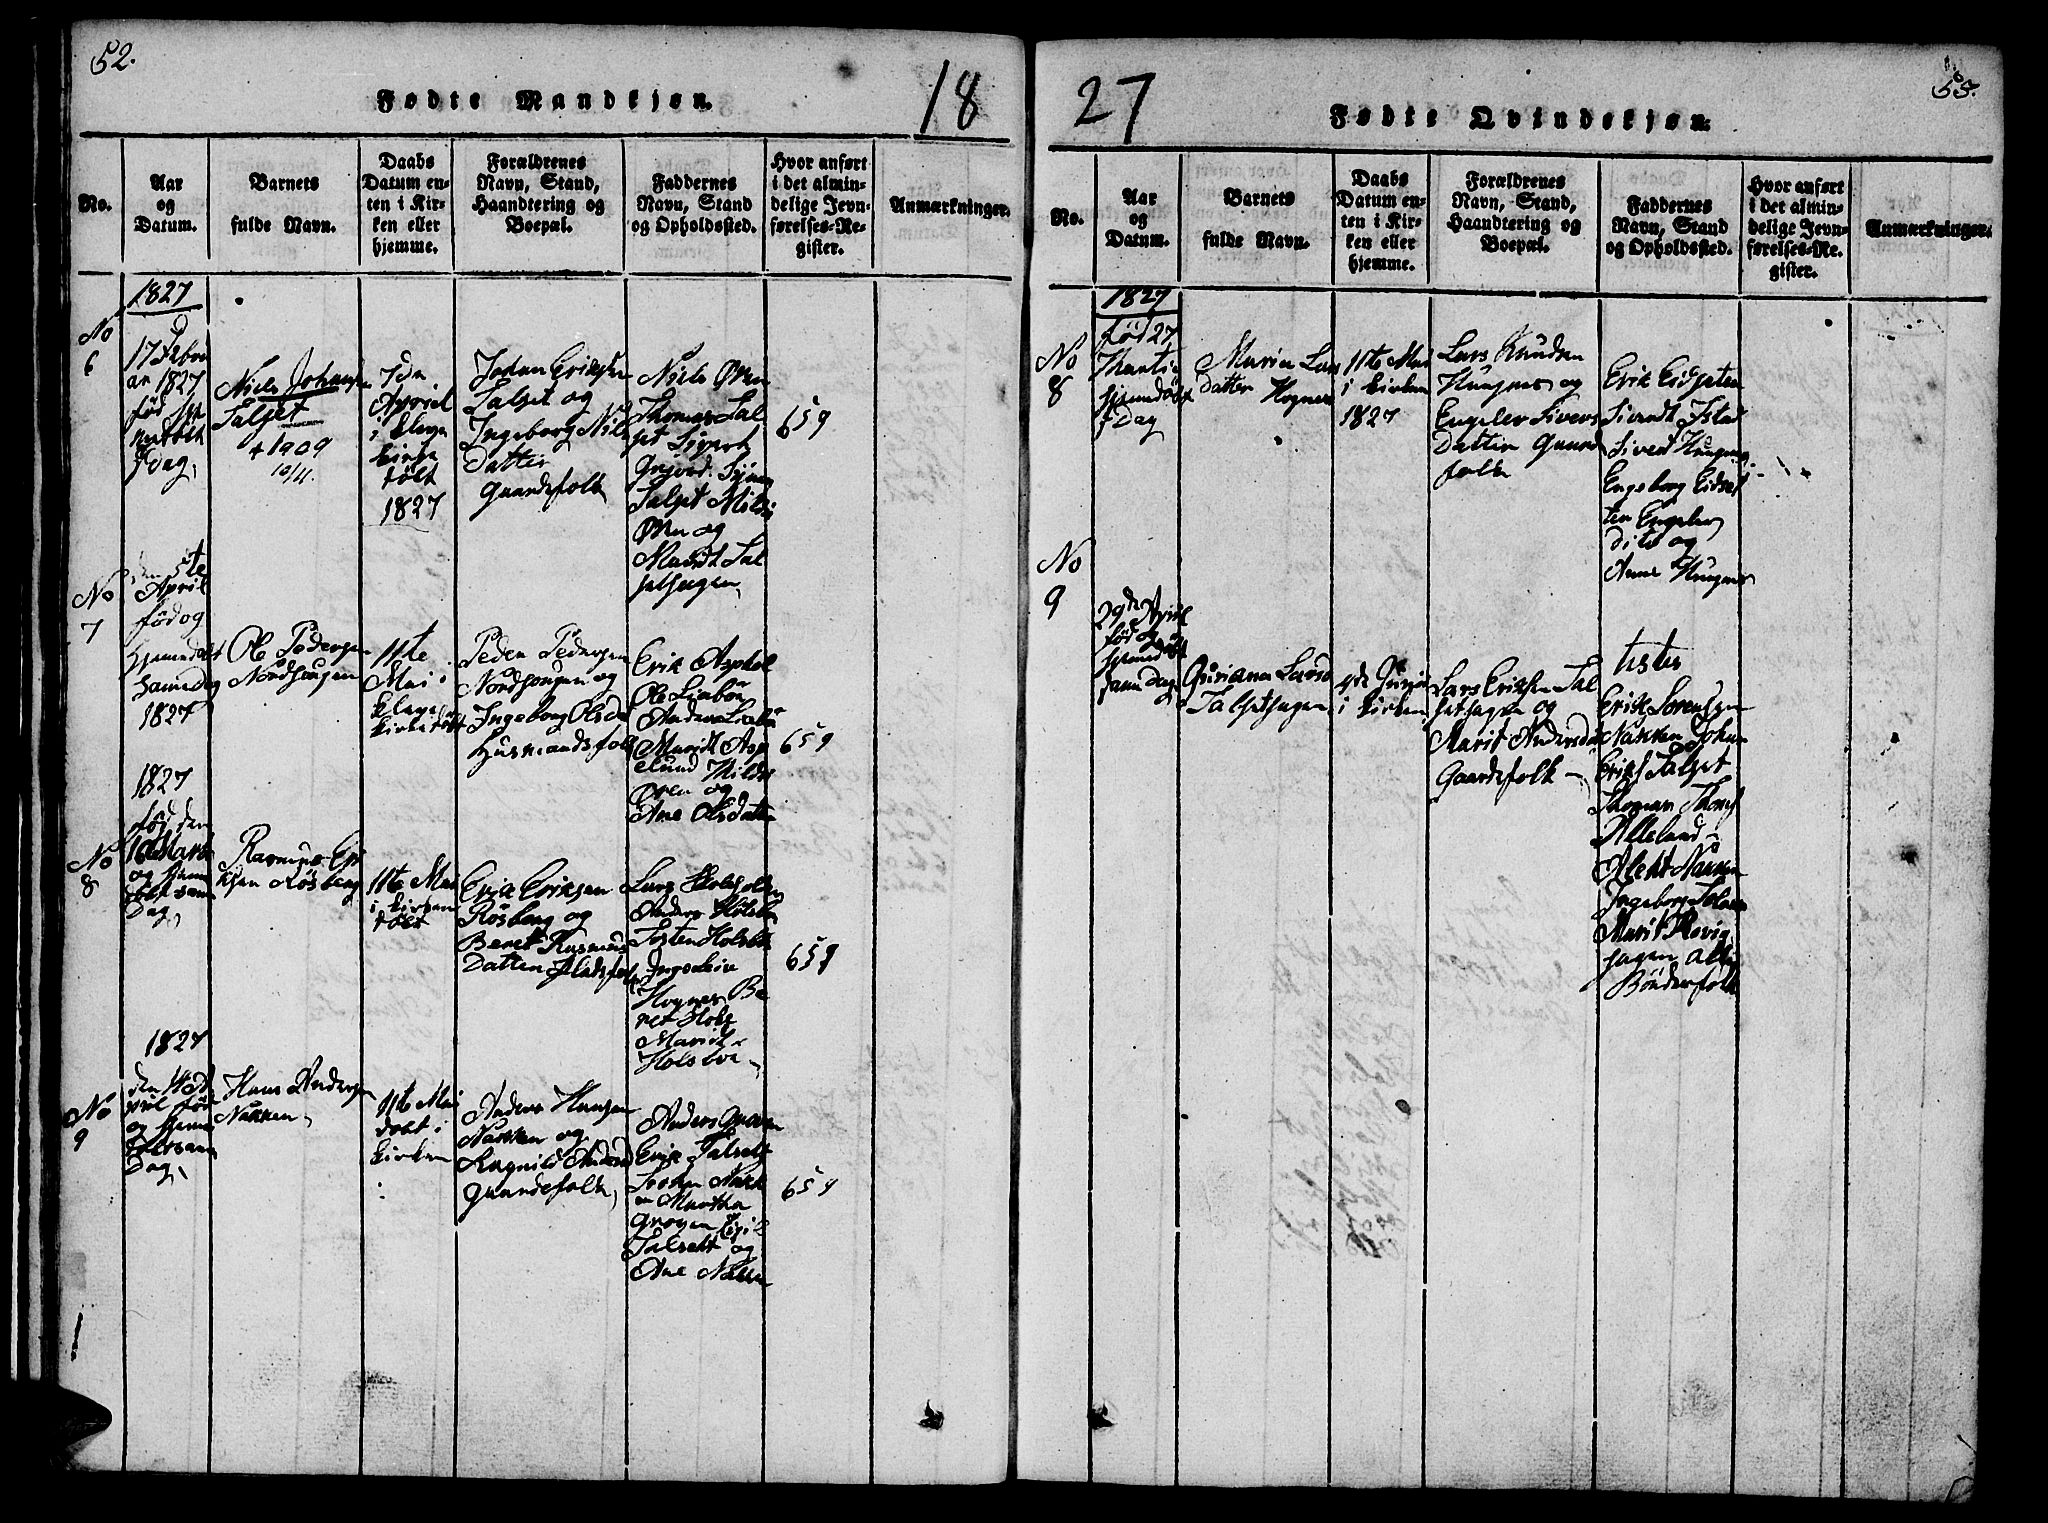 52.
Fødte Mandkjøn.
18
No.
Aar
og
Datum.
Barnets
fulde Navn.
Daabs
Datum en-
ten i Kir-
ken eller
hjemme.
Forældrenes
Navn, Stand,
Haandtering og
Boepæl.
Faddernes
Navn, Stand
og Opholdssted.
Hvor anført
i det almin-
delige Jevn-
førelses-Re-
gister.
Anmærkninger.
No
6
1827
17 Febru
ar 1827
død
f Dag,
Niels Johansen
Talset
+ 1909
10/4.
7de
April
i
døbt
1827
Johan Eriksen
Talset og
Ingeborg Niels
Datter
Gaardefolk
Niels Øren
Thomas Tal
set Sivert
Talset Mildri
Øren og
Marit Tal
sethagen
659
No
7
den 5te
April
fød og
hjemedøbt
samedag
1827
Ole Pedersen
Nordhougen
11te
Mai
Peder Pedersen
Nordhougen og
Ingeborg Olsda
Husmandsfolk
Erik Asphol
Ole Liabøe
Anders Liabø
Maridt Asp
elund Mildri
Øren og
Ane Olsdatter
659
No
8
1827
fød den
16de Marti
og hjem
døbt sam
Dag,
Rasmus Eri
ksen Røsberg
11te Mai
i kirken
døbt
Erik Eriksen
Røsberg og
Beret Rasmus
Datter
Lars
Anders Holsbø
Tosten Holsbø
Hognes Be
ret Hols
Marit
Holsbøe
659
No
9
1827
den 14de A
pril fød
og hjeme
døbt sam
Dag,
Hans Andersen
Nakken
11te Mai
døbt i
kirken
Anders Hansen
Nakken og
Ragnild Andersd
Gaardefolk
Anders Groven
Erik Talset
Iohan Nakk
en Martha
Groven
Talsett og
Ane Nakken
659
27
53.
Fødte Qvindekjøn.
No.
Aar
og
Datum.
Barnets
fulde Navn.
Daabs
Datum en-
ten i Kir-
ken eller
hjemme.
Forældrenes
Navn, Stand,
Haandtering og
Boepæl.
Faddernes
Navn, Stand
og Opholdssted.
Hvor anført
i det almin-
delige Jevn-
førelses-Re-
gister.
Anmærkninger.
No
8
1827
fød 27
Martii
hjemdøbt
f Dag
Maria Lars
Datter Hognes
11te Mai
i kirken
1827
Lars Knudsen
Hungnes og
Engeler Sivers
Datter Gaard
folk
Erik Eidseter
Sivendt Istad
Siver Hungnes
Engeborg Eidset
ter Engeler
dito og
Anne Hungnes
No
9
29de April
fød og
hjemdøbt
samDag
Guriana Larsd
Talsethagen
4de Juni
i kirken
Lars Eriksen Tal
sethagen og
Marit Andersdat
Gaardefolk
testes
Erik Sorensen
Nakken Johan
Eriks Talset
Thomas Thoms
Alleland
Aleht Nakken
Ingeborg Talset
Marit Røvig
hagen alle
Bønderfolk